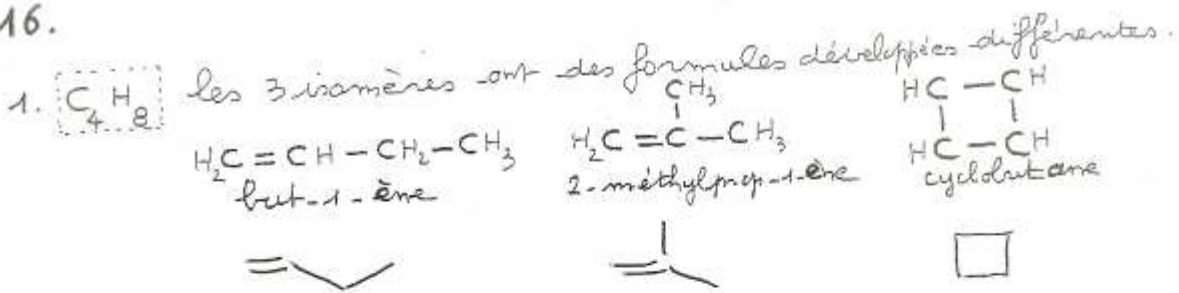 16.
1. C4H8 les 3 isomères ont des formules développées différentes.
H2C = CH – CH2 – CH3
but-1-ène
CH3
H2C = C – CH3
2-méthylprop-1-ène
HC – CH
HC – CH
cyclobutane